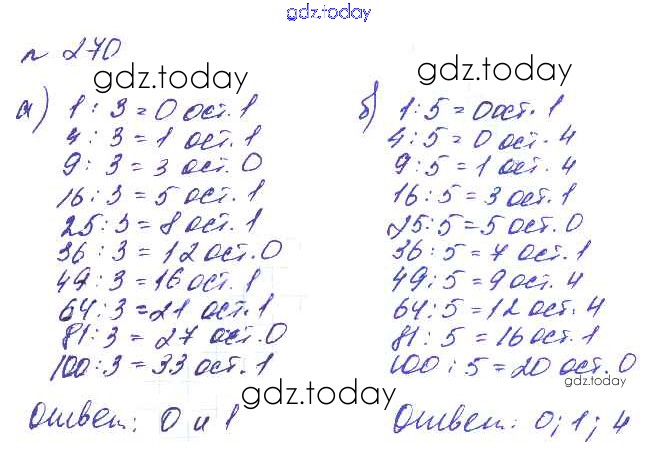 gdz.today
№ 270
gdz.today
gdz.today
а) 1 : 3 = 0 ост. 1
4 : 3 = 1 ост. 1
9 : 3 = 3 ост. 0
16 : 3 = 5 ост. 1
25 : 3 = 8 ост. 1
36 : 3 = 12 ост. 0
49 : 3 = 16 ост. 1
64 : 3 = 21 ост. 1
81 : 3 = 27 ост. 0
100 : 3 = 33 ост. 1
Ответ: 0 и 1
б) 1 : 5 = 0 ост. 1
4 : 5 = 0 ост. 4
9 : 5 = 1 ост. 4
16 : 5 = 3 ост. 1
25 : 5 = 5 ост. 0
36 : 5 = 7 ост. 1
49 : 5 = 9 ост. 4
64 : 5 = 12 ост. 4
81 : 5 = 16 ост. 1
100 : 5 = 20 ост. 0
gdz.today
gdz.today
Ответ: 0; 1; 4